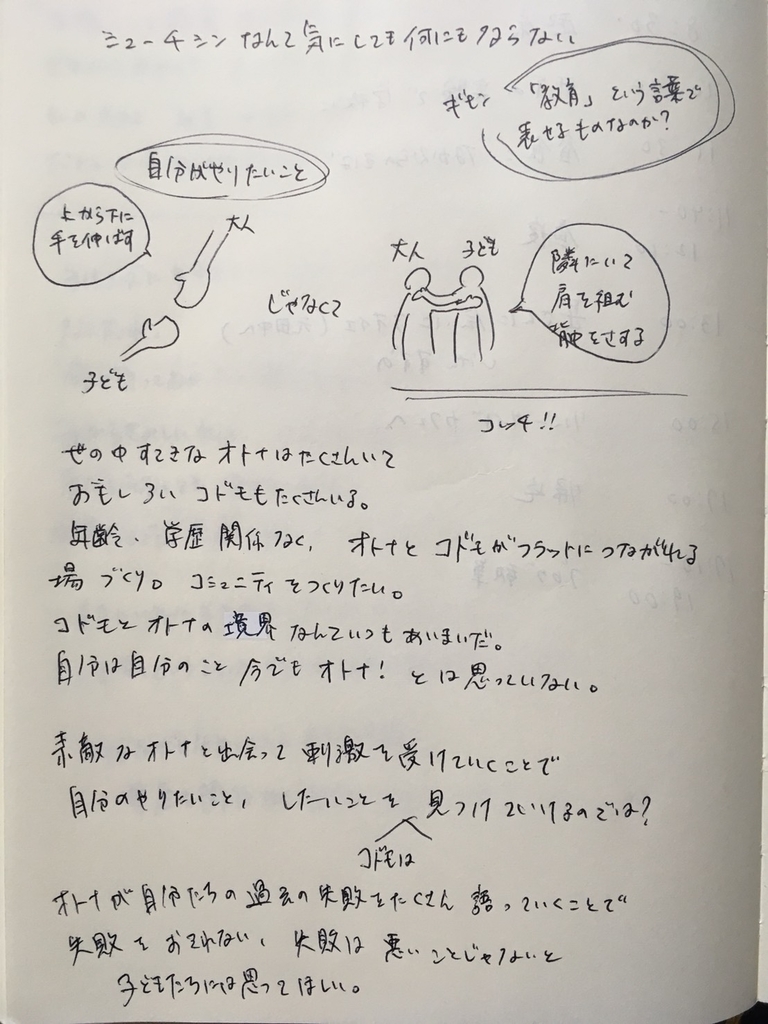 ミューチシンなんて気にしても何にもならない
ギモン
「教育」という言葉で
表せるものなのか?
自分がやりたいこと
上から下に
手を伸ばす
大人
子ども
じゃなくて
大人 子ども
隣にいて
肩を組む
背中をさする
コレチ!!
世の中すてきなオトナはたくさんいて
おもしろいコドモもたくさんいる。
年齢、学歴関係なく、オトナとコドモがフラットにつながれる
場づくり。コミュニティをつくりたい。
コドモとオトナの境界なんていつもあいまいだ。
自分は自分のこと今でもオトナ!とは思っていない。
素敵なオトナと出会って刺激を受けていくことで
自分のやりたいこと、したいことを見つけていけるのでは?
コドモは
オトナが自分たちの過去の失敗をたくさん語っていくことで
失敗をおそれない、失敗は悪いことじゃないと
子どもたちには思ってほしい。